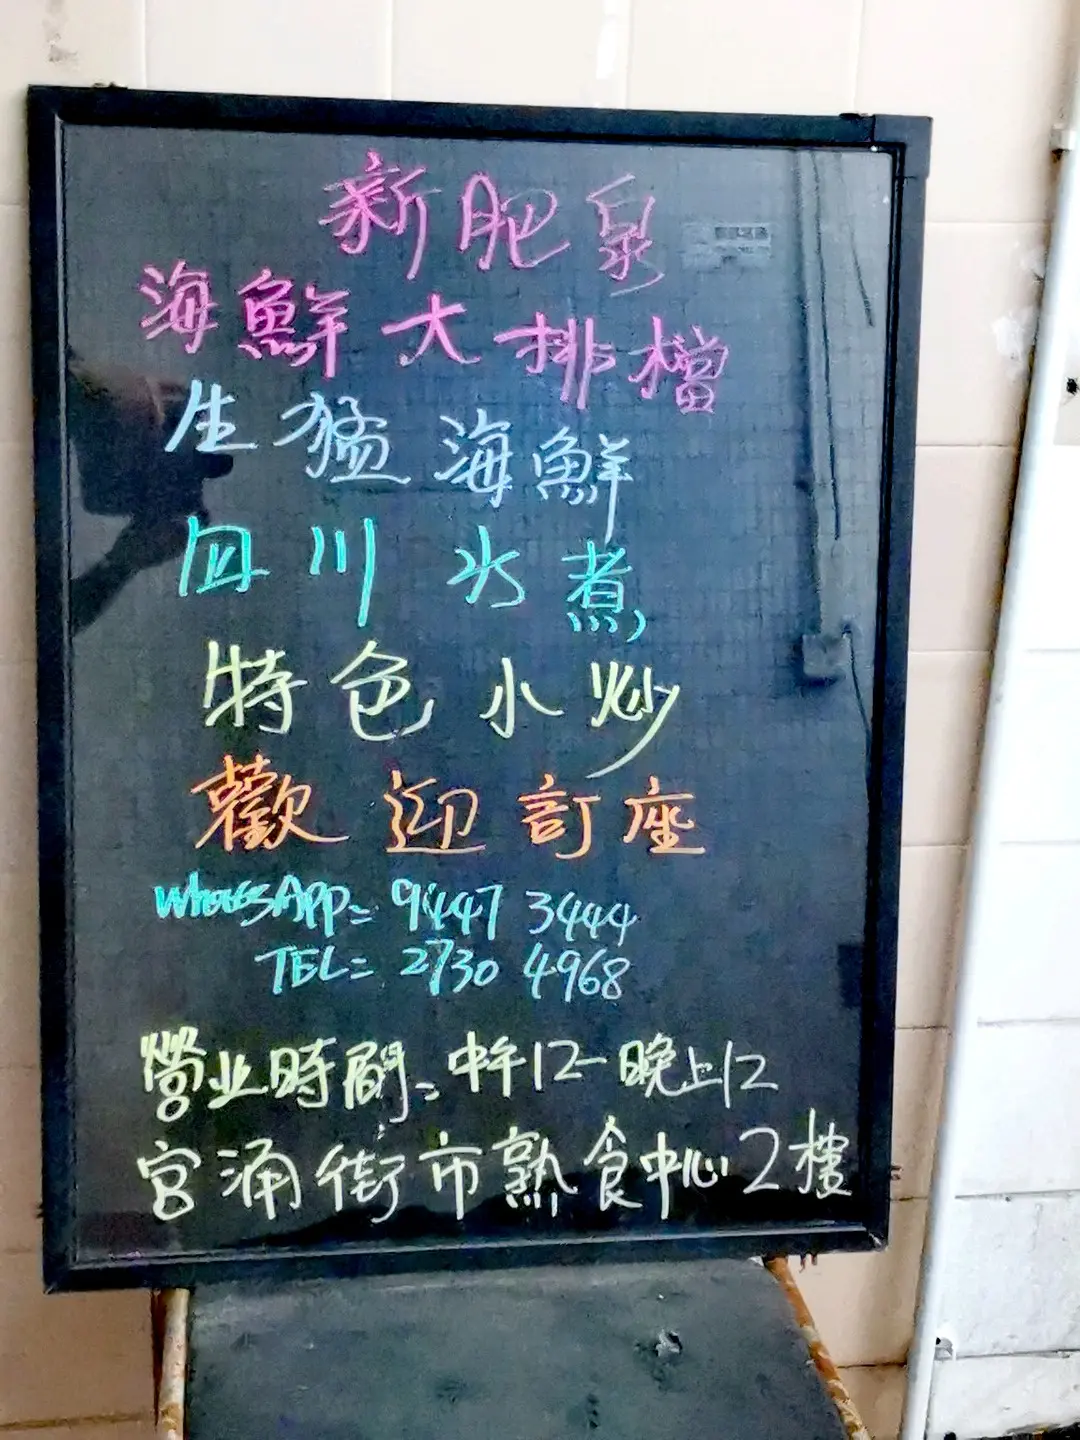 新肥泉
海鮮大排檔
生猛海鮮
四川水煮
特色小炒
歡迎訂座
WhatsApp= 9447 3444
TEL= 2730 4968
營业時間:中午12-晚上12
官涌街市熟食中心2樓